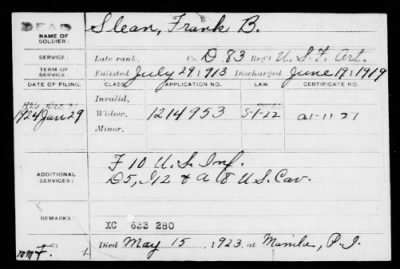 DEAD Slean, Frank B.
NAME OF SOLDIER:
SERVICE: Late rank, Co. D. 83 Reg't U.S.F. Art.
TERM OF SERVICE: Enlisted July 29, 1913 Discharged June 19, 1919
DATE OF FILING. CLASS. APPLICATION NO. LAW. CERTIFICATE NO.
Invalid,
1924 Jan 29 Widow, 1214953 A-11-27
Minor,
ADDITIONAL SERVICES: F 10 U.S. Inf.
D5, I 12 & A 8 U.S. Cav.
REMARKS: XC 633 280
Died May 15, 1923, at Manila, P.I.